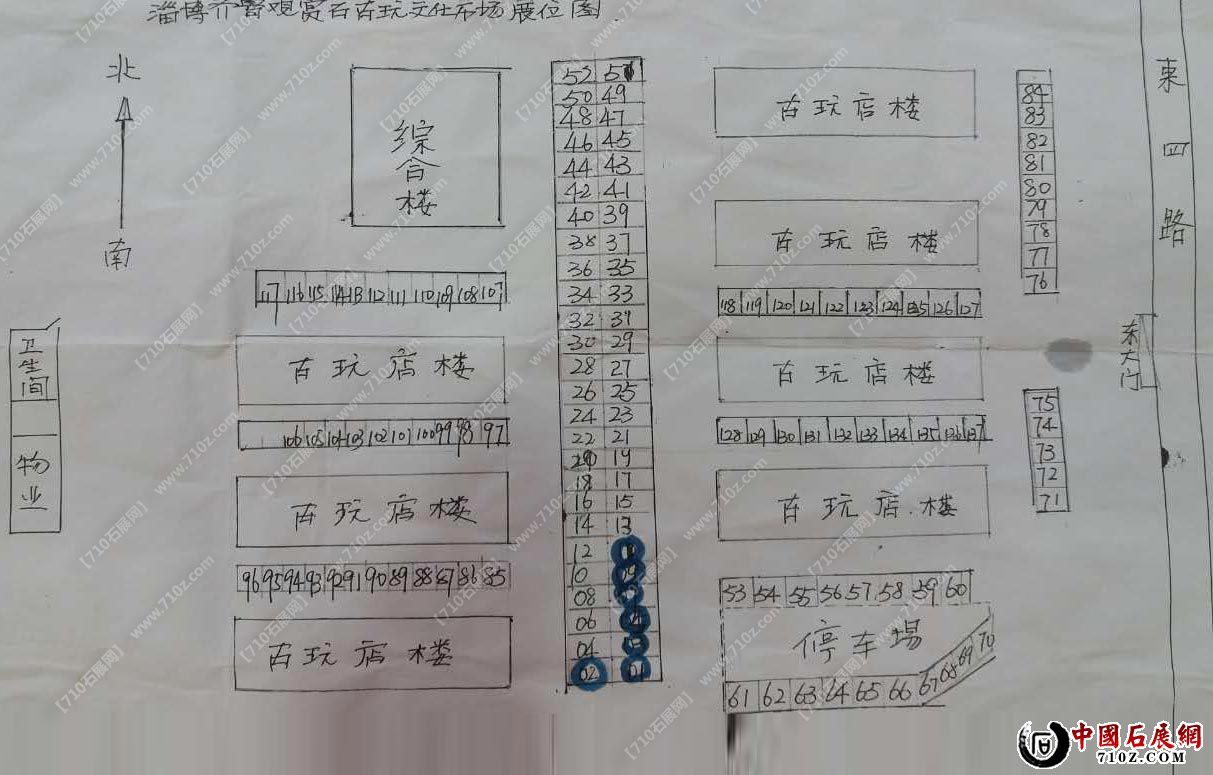 淄博齐鲁观赏石古玩文化市场展位图
北
南
综合楼
52 51
50 49
48 47
46 45
44 43
42 41
40 39
38 37
36 35
34 33
32 31
30 29
28 27
26 25
24 23
22 21
20 19
18 17
16 15
14 13
12
10 09
08
06
04
02 01
古玩店楼
古玩店楼
118 119 120 121 122 123 124 125 126 127
古玩店楼
128 129 130 131 132 133 134 135 136 137
古玩店.楼
53 54 55 56 57 58 59 60
停车场
61 62 63 64 65 66 67 68 69 70
84
83
82
81
80
79
78
77
76
75
74
73
72
71
東四路
东大门
117 116 115 114 113 112 111 110 109 108 107
古玩店楼
106 105 104 103 102 101 100 99 98 97
古玩店楼
96 95 94 93 92 91 90 89 88 87 86 85
古玩店楼
卫生间
物业
【710石展网】
www.710z.com
中國石展網
710Z.COM